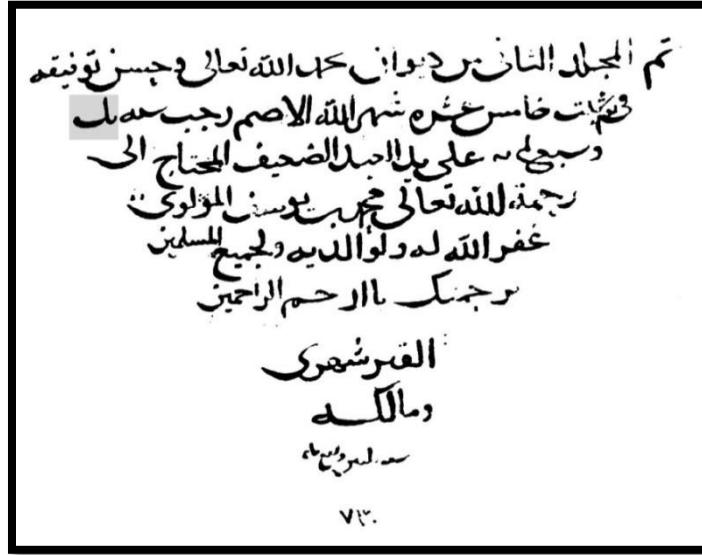 تم المجلد الثانى من ديوان بحمد الله تعالى وحسن توفيقه
فى خامس عشره شهر الله الاصم رجب سنه
وسبعمايه على يد العبد الضعيف المحتاج الى
رحمة الله تعالى محمد بن يوسف المولوى
غفر الله له ولوالديه ولجميع المسلمين
برحمتك يا ارحم الراحمين
القيرشهرى
ومالكه
٧٣٠